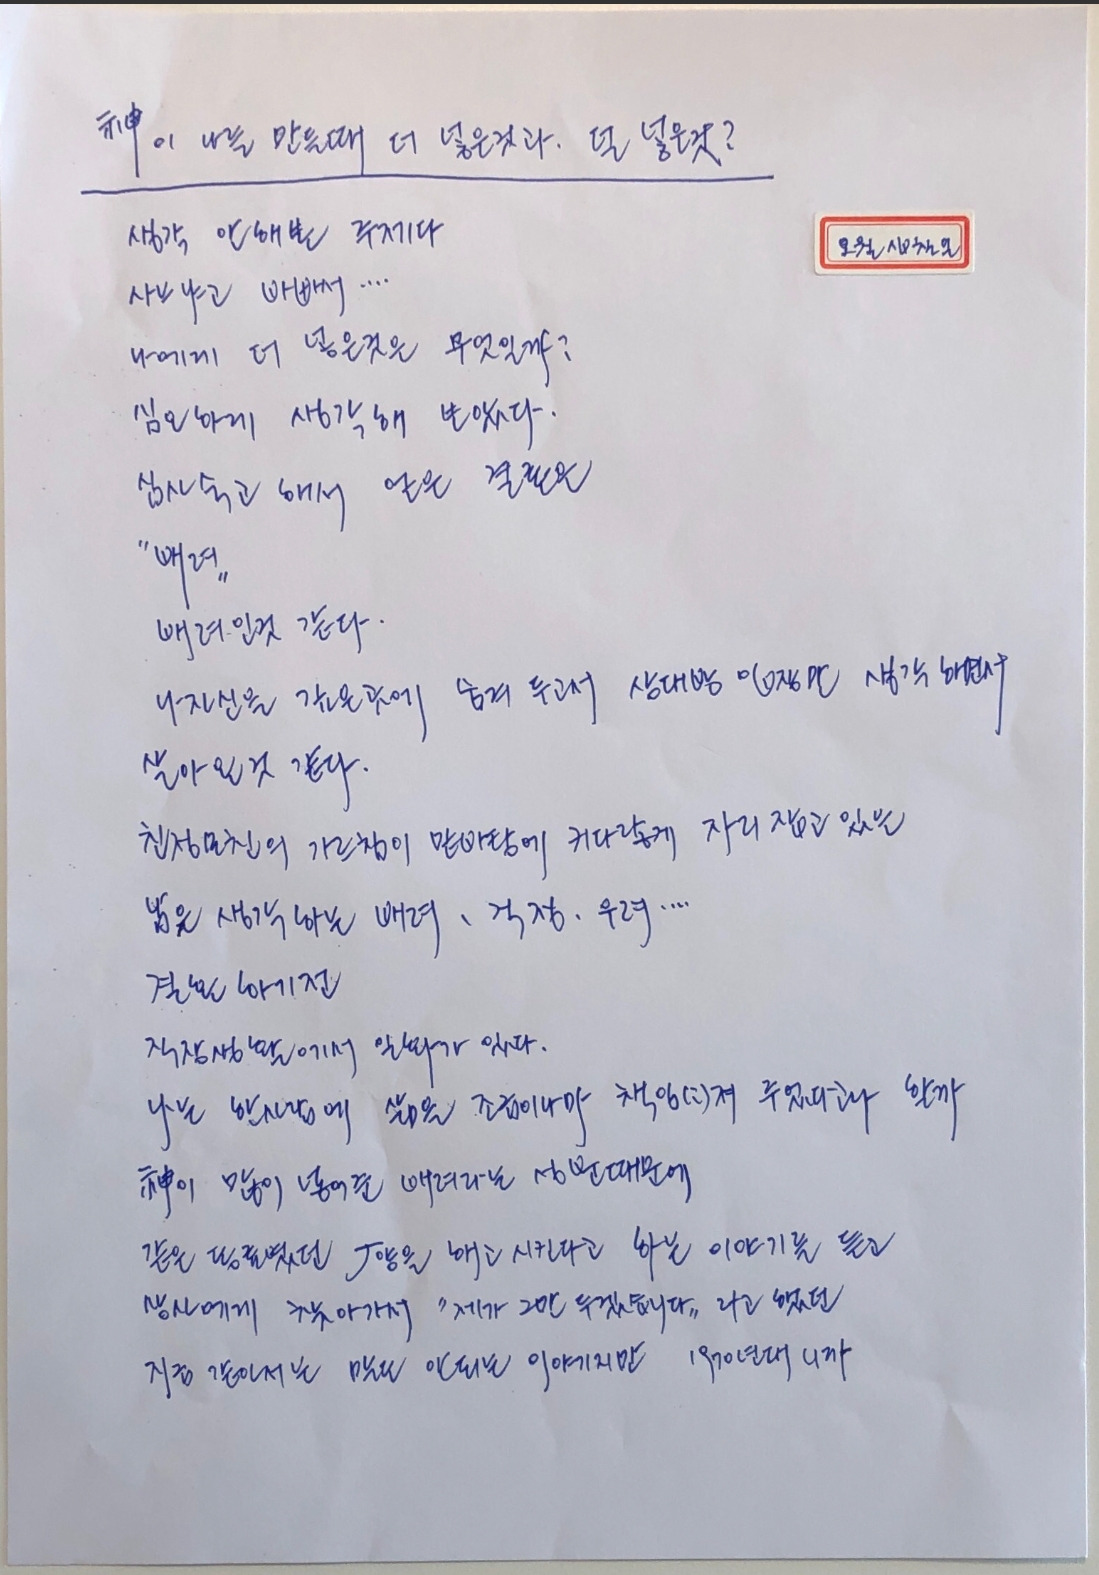 神이 나를 만들때 더 넣은것과. 덜 넣은것?
생각 안해본 주제다
오월 십칠일
사느냐고 바빠서 ....
나에게 더 넣은것은 무엇일까?
심오하게 생각해 보았다.
심사숙고 해서 얻은 결론은
"배려"
배려인것 같다.
나자신을 깊은곳에 숨겨 두고서 상대방 입장만 생각 하면서
살아 온것 같다.
친정모친의 가르침이 밑바탕에 커다랗게 자리 잡고 있는
남을 생각하는 배려, 걱정. 우려....
결혼 하기전
직장생활에서 일화가 있다.
나는 한사람에 삶을 조금이나마 책임(?)져 주었다고나 할까
神이 많이 넣어준 배려라는 성분때문에
같은 동료였던 J양을 해고 시킨다고 하는 이야기를 듣고
상사에게 찾아가서 "제가 그만 두겠습니다" 라고 했던
지금 같아서는 말도 안되는 이야기지만 1970년대 니까